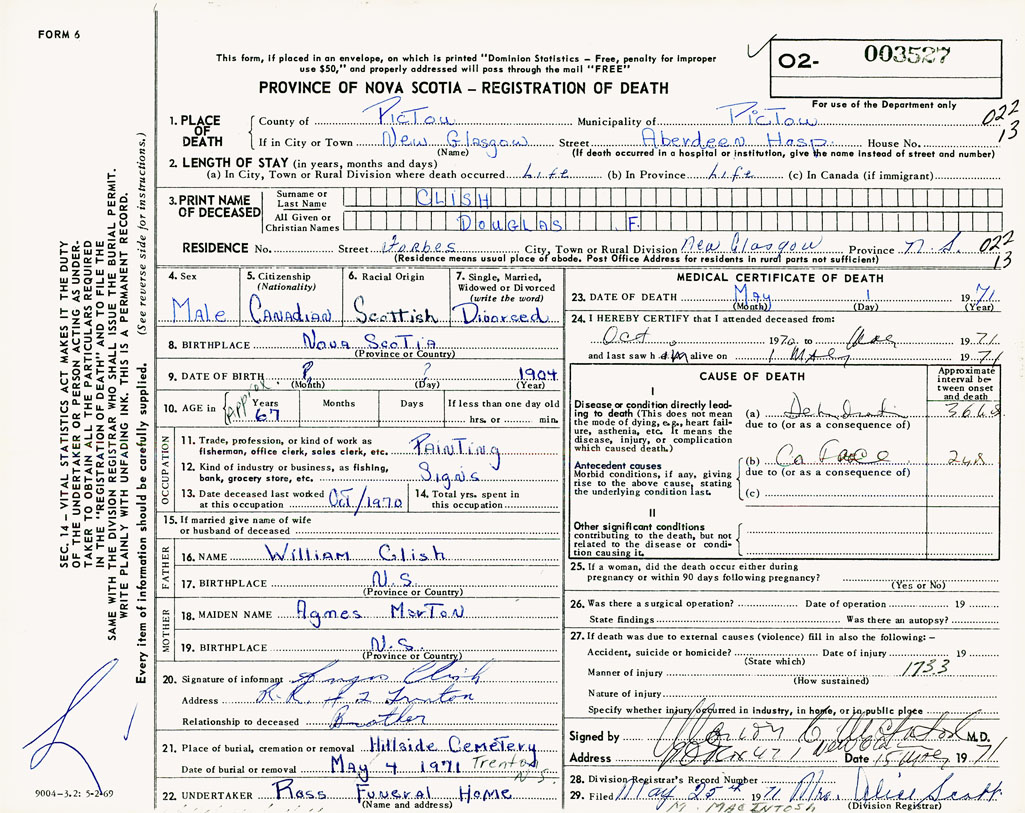 FORM 6
This form, if placed in an envelope, on which is printed "Dominion Statistics – Free, penalty for improper
use $50," and properly addressed will pass through the mail "FREE"
O2- 003527
PROVINCE OF NOVA SCOTIA – REGISTRATION OF DEATH
For use of the Department only
1. PLACE OF DEATH
County of PicTou Municipality of PicTou 022
If in City or Town New Glasgow Street Aberdeen Hosp. House No. 13
(Name) (If death occurred in a hospital or institution, give the name instead of street and number)
2. LENGTH OF STAY (in years, months and days)
(a) In City, Town or Rural Division where death occurred Life (b) In Province Life (c) In Canada (if immigrant)
3. PRINT NAME OF DECEASED
Surname or Last Name CLISH
All Given or Christian Names DOUGLAS F.
RESIDENCE No. Street Forbes City, Town or Rural Division New Glasgow Province N.S. 022
(Residence means usual place of abode. Post Office Address for residents in rural parts not sufficient) 13
4. Sex
Male
5. Citizenship
(Nationality)
CANADIAN
6. Racial Origin
Scottish
7. Single, Married,
Widowed or Divorced
(write the word)
Divorsed
8. BIRTHPLACE Nova ScoTia
(Province or Country)
9. DATE OF BIRTH ? ? 1904
(Month) (Day) (Year)
approx.
10. AGE in Years 67 Months Days If less than one day old
hrs. or min.
OCCUPATION
11. Trade, profession, or kind of work as
fisherman, office clerk, sales clerk, etc. PAINTING
12. Kind of industry or business, as fishing,
bank, grocery store, etc. Signs
13. Date deceased last worked
at this occupation Oct/1970
14. Total yrs. spent in
this occupation
15. If married give name of wife
or husband of deceased
FATHER
16. NAME William Clish
17. BIRTHPLACE N.S.
(Province or Country)
MOTHER
18. MAIDEN NAME Agnes MorToN
19. BIRTHPLACE N.S.
(Province or Country)
20. Signature of informant Clish
Address R.R. # 2 Trenton
Relationship to deceased Brother
21. Place of burial, cremation or removal Hillside Cemetery
Date of burial or removal May 4 1971 Trenton
N.S.
22. UNDERTAKER Ross Funeral Home
(Name and address)
MEDICAL CERTIFICATE OF DEATH
23. DATE OF DEATH May 1 1971
(Month) (Day) (Year)
24. I HEREBY CERTIFY that I attended deceased from:
Oct 1970 to May 1971
and last saw him alive on 1 May 1971
CAUSE OF DEATH
Approximate
interval be-
tween onset
and death
I
Disease or condition directly lead-
ing to death (This does not mean
the mode of dying, e.g., heart fail-
ure, asthenia, etc. It means the
disease, injury, or complication
which caused death.)
(a)
due to (or as a consequence of)
Antecedent causes
Morbid conditions, if any, giving
rise to the above cause, stating
the underlying condition last.
(b) Ca
due to (or as a consequence of)
(c)
II
Other significant conditions
contributing to the death, but not
related to the disease or condi-
tion causing it.
25. If a woman, did the death occur either during
pregnancy or within 90 days following pregnancy?
(Yes or No)
26. Was there a surgical operation? Date of operation 19
State findings Was there an autopsy?
27. If death was due to external causes (violence) fill in also the following: –
Accident, suicide or homicide? Date of injury 19
(State which)
Manner of injury 1733
(How sustained)
Nature of injury
Specify whether injury occurred in industry, in home, or in public place
Signed by M.D.
Address Box 47 Date 15 May 1971
28. Division Registrar's Record Number
29. Filed May 25th 1971 Mrs. Alice Scott
M. MACINTOSH (Division Registrar)
SEC. 14 – VITAL STATISTICS ACT MAKES IT THE DUTY
OF THE UNDERTAKER OR PERSON ACTING AS UNDER-
TAKER TO OBTAIN ALL THE PARTICULARS REQUIRED
IN THE "REGISTRATION OF DEATH" AND TO FILE THE
SAME WITH THE DIVISION REGISTRAR WHO SHALL ISSUE THE BURIAL PERMIT.
WRITE PLAINLY WITH UNFADING INK. THIS IS A PERMANENT RECORD.
Every item of information should be carefully supplied. (See reverse side for instructions.)
9004-3.2: 5-2-69